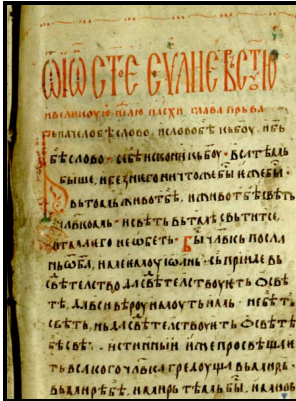 ѿ іѡ ст҃е еѵⷢ҇лие въ ст҃ѹю
и великоую нед҃лю пасхи глава пръва
Въ начелѣ бѣ слово, и слово бѣ къ б҃оу, и б҃ъ
бѣ слово, сеи бѣ искони къ б҃оу, вса тѣмь
быше, и безнѥго ничтоже бы, ѥже бы,
въ томь животь бѣ, и животь бѣ свѣть
чл҃вкомь, и свѣть въ тмѣ свьтитсе,
и тма ѥго не ѡбеть. Бы чл҃вкь посла
нь ѿ б҃а, име ѥмоу іѡань, сь прїиде вь
свѣтелство да свѣтелствоуѥть ѡ свѣ
тѣ, да вси вѣроу имоуть имь, не бѣ ть
свѣть, нь да свѣтелствоуѥть ѡ свѣтѣ
бѣ свѣть истинныи, иже просвѣщаѥ
ть всакого чл҃вка гредоуща вь мирь,
вь мирѣ бѣ, и мирь тѣмь бы, и мирь